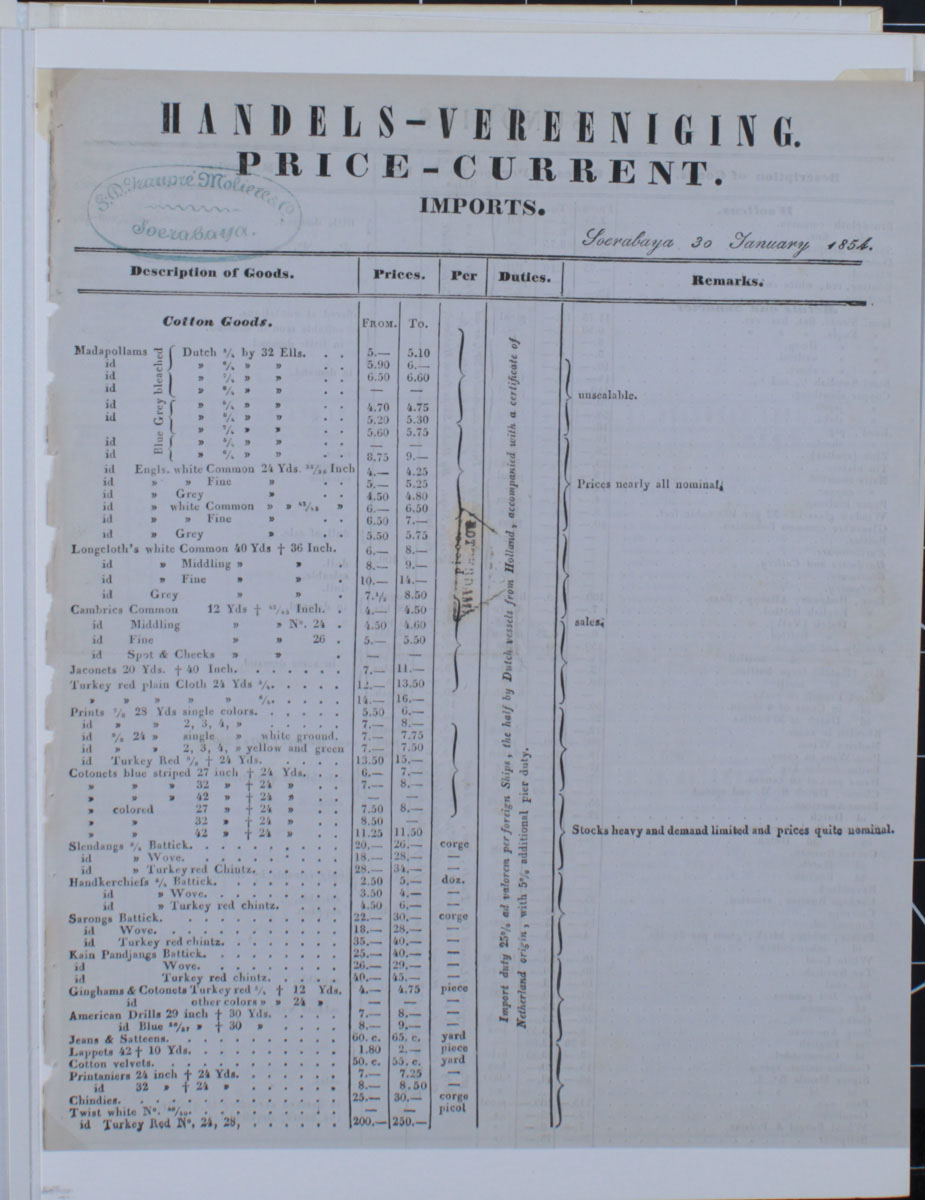 HANDELS-VEREENIGING.
PRICE-CURRENT.
IMPORTS.
Soerabaya.
Soerabaya 30 January 1854.
Description of Goods. Prices. Per Duties. Remarks.
Cotton Goods. FROM. TO.
Madapollams Dutch by 32 Ells. . . 5.— 5.10
id » » » . . 5.90 6.—
id » » » . . 6.50 6.60
id » » » . . — —
bleached
unsealable.
id » » » . . 4.70 4.75
id » » » . . 5.20 5.30
» » » . . 5.60 5.75
id » » » . . —
id » » » . . 8.75 9.—
Blue Grey
id Engls. white Common 24 Yds. Inch 4.— 4.25
id » » Fine » . 5.— 5.25
id » Grey » . 4.50 4.80
Prices nearly all nominal,
id » white Common » » » 6.— 6.50
id » » Fine » . 6.50 7.—
id » Grey » . 5.50 5.75
Longcloth's white Common 40 Yds † 36 Inch. 6.— 8.—
id » Middling » » . 8.— 9.—
id » Fine » » . 10.— 14.—
id Grey » » . 7.½ 8.50
Cambrics Common 12 Yds † Inch. . 4.— 4.50
id Middling » » Nº. 24 . 4.50 4.60
sales,
id Fine » » 26 . 5.— 5.50
id Spot & Checks » » . —
Jaconets 20 Yds. † 40 Inch. . . . . . 7.— 11.—
Turkey red plain Cloth 24 Yds . . . . . 12.— 13.50
» » » » » . . . . . 14.— 16.—
Prints 28 Yds single colors. . . . . . 5.50 6.—
id » » 2, 3, 4, » . . . . . 7.— 8.—
id 24 » single » white ground. 7.— 7.75
id » » 2, 3, 4, » yellow and green 7.— 7.50
id Turkey Red † 24 Yds. . . . . 13.50 15.—
Cotonets blue striped 27 inch † 24 Yds. . . 6.— 7.—
» » » 32 » † 24 » . . 7.— 8.—
» » » 42 » † 24 » . . —
» colored 27 » † 24 » . . 7.50 8.—
» » 32 » † 24 » . . 8.50 —
» » 42 » † 24 » . . 11.25 11.50
Stocks heavy and demand limited and prices quite nominal.
Slendangs Battick. . . . . . . . . 20.— 26.— corge
id » Wove. . . . . . . . . 18.— 28.— —
id » Turkey red Chintz. . . . . . 28.— 34.— —
Handkerchiefs Battick. . . . . . . . 2.50 5.— doz.
id » Wove. . . . . . . . 3.50 4.— —
id » Turkey red chintz. . . . 4.50 6.— —
Sarongs Battick. . . . . . . . . . 22.— 30.— corge
id Wove. . . . . . . . . . 18.— 28.— —
id Turkey red chintz. . . . . . . 35.— 40.— —
Kain Pandjangs Battick. . . . . . . . 25.— 40.— —
id Wove. . . . . . . . 26.— 29.— —
id Turkey red chintz. . . . . 40.— 45.— —
Ginghams & Cotonets Turkey red † 12 Yds. 4.— 4.75 piece
id other colors » » 24 » — — —
American Drills 29 inch † 30 Yds. . . . . 7.— 8.— —
id Blue » † 30 » . . . . 8.— 9.— —
Jeans & Satteens. . . . . . . . . . 60. c. 65. c. yard
Lappets 42 † 10 Yds. . . . . . . . . 1.80 2.— piece
Cotton velvets. . . . . . . . . . 50. c. 55. c. yard
Printaniers 24 inch † 24 Yds. . . . . . 7.— 7.25 —
id 32 » † 24 » . . . . . 8.— 8.50 —
Chindies. . . . . . . . . . . . 25.— 30.— corge
Twist white Nº. . . . . . . . . . — — picol
id Turkey Red Nº. 24, 28, . . . . . . 200.— 250.— —
Import duty 25% ad valorem per foreign Ships, the half by Dutch vessels from Holland, accompanied with a certificate of
Netherland origin, with 5% additional pier duty.